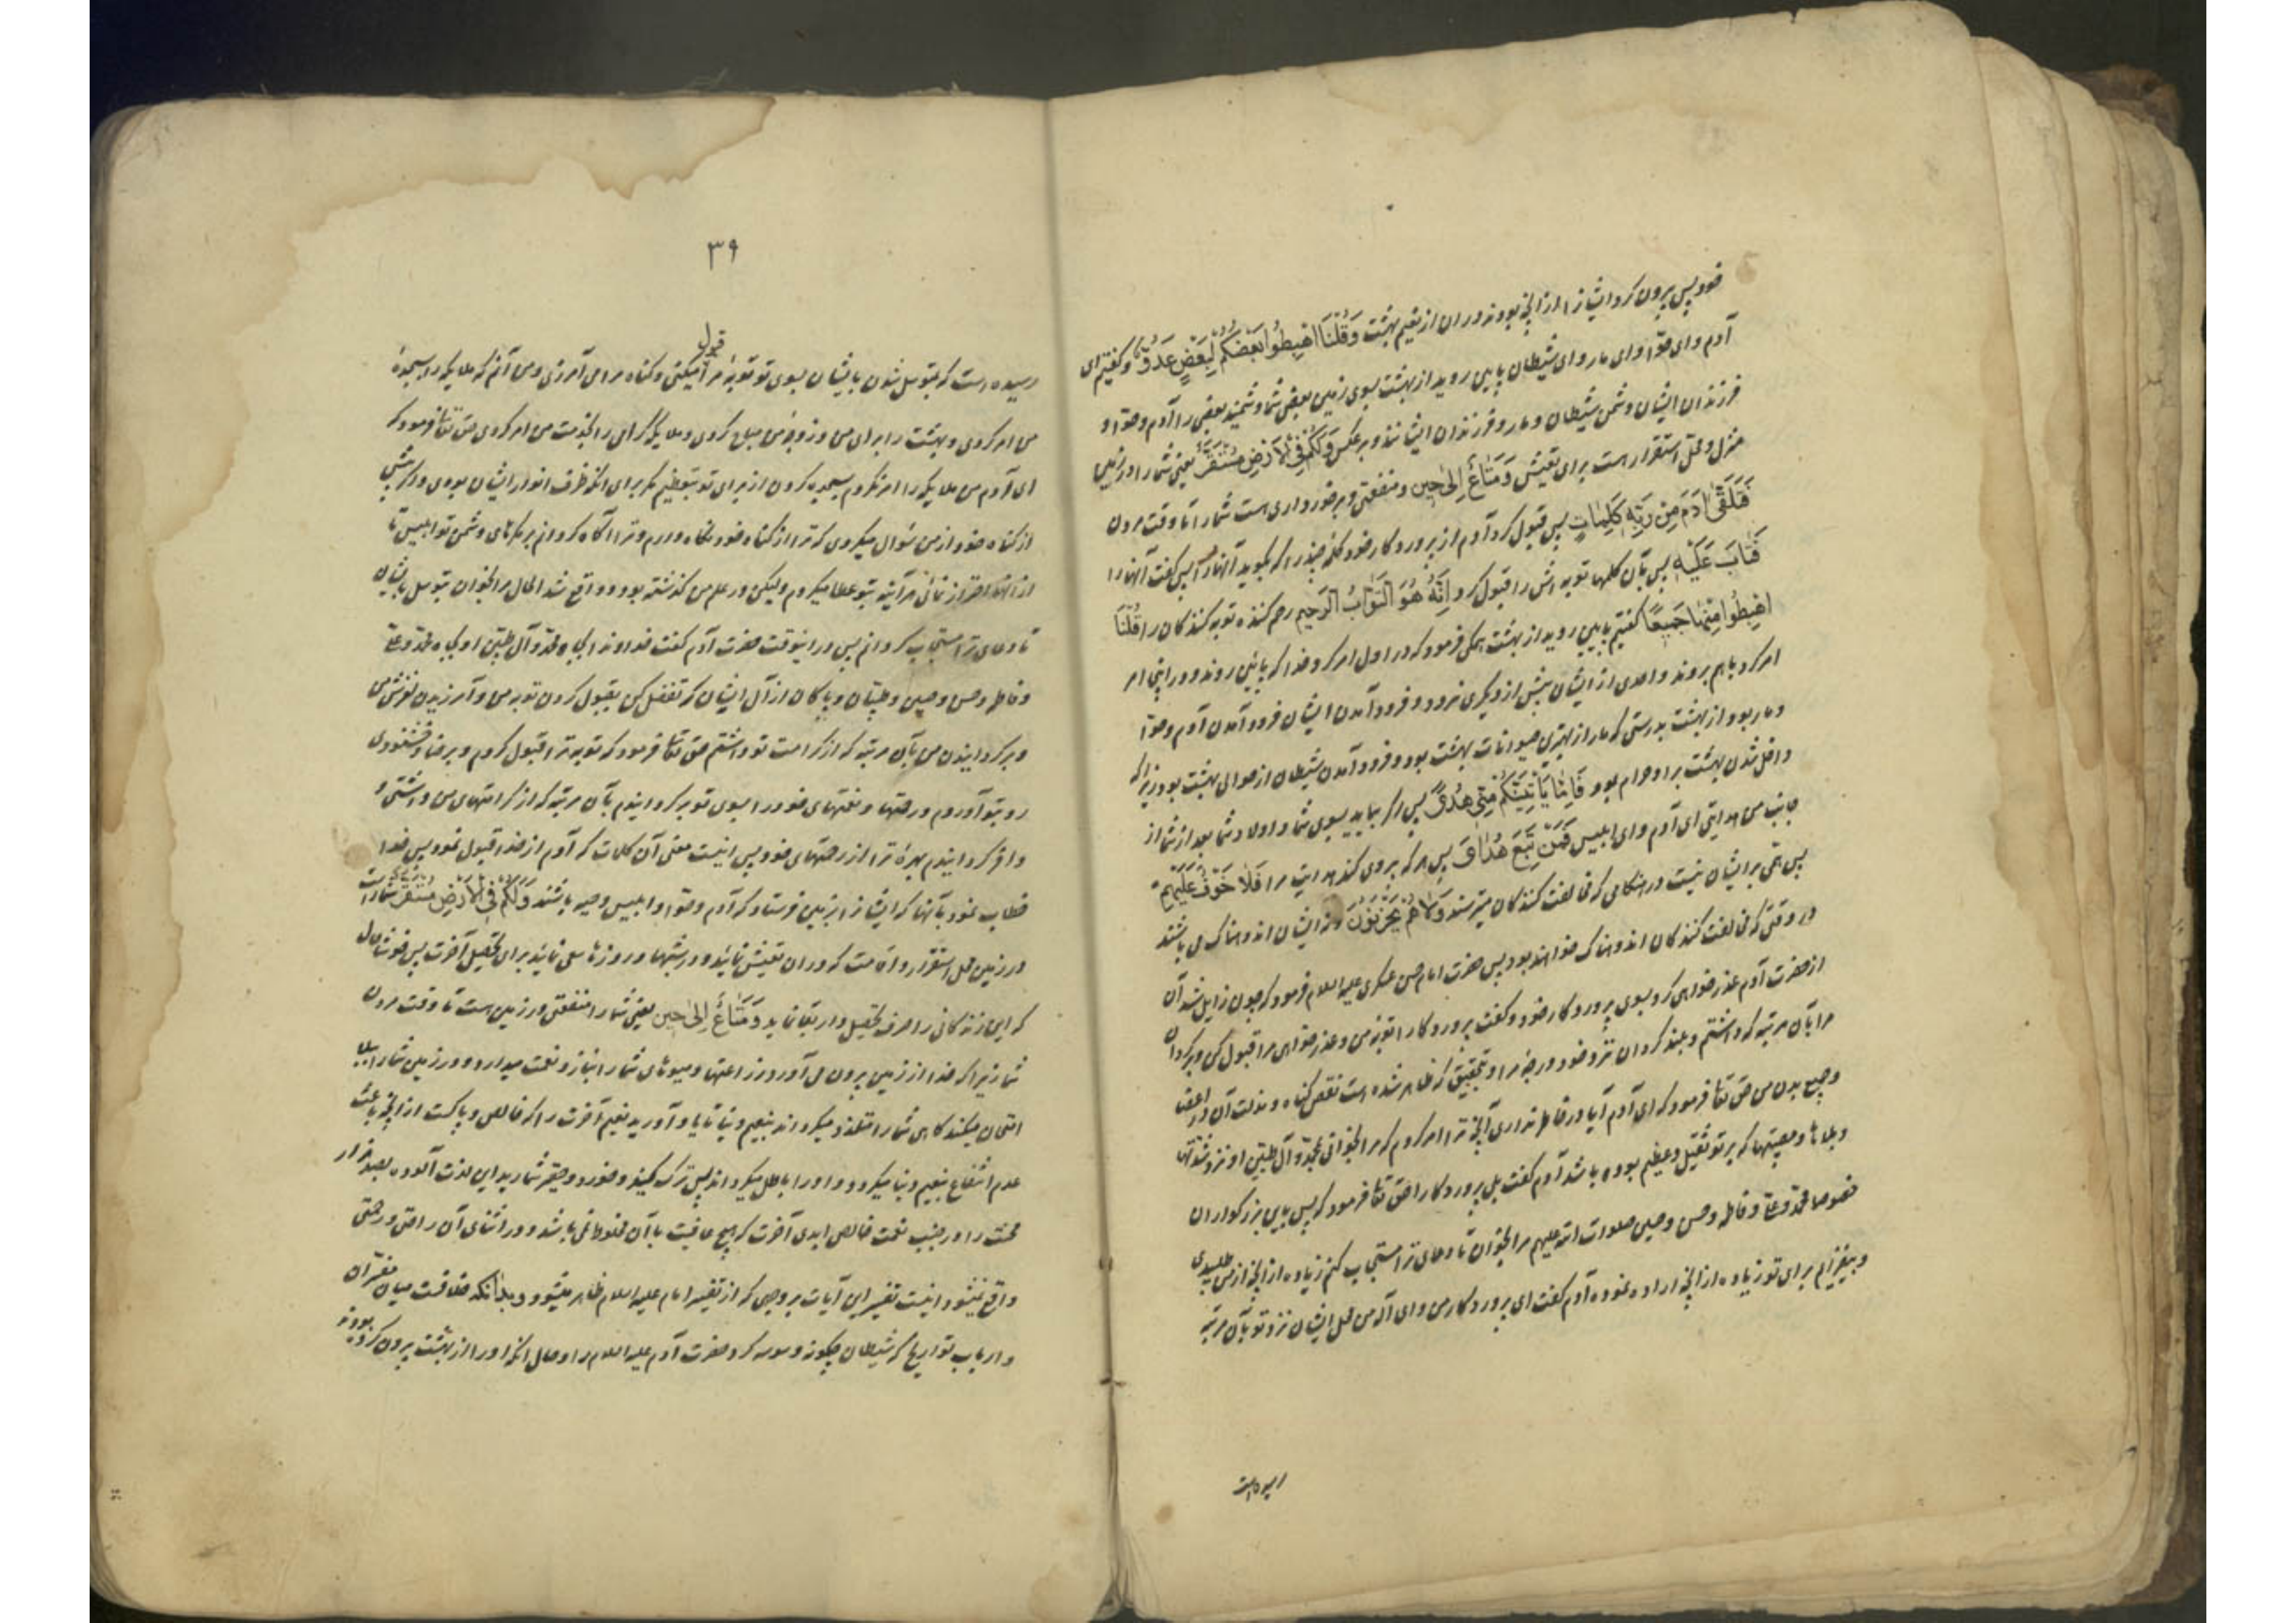 خود پس بیرون کرد ایشان را از آنچه بودند در آن از نعیم بهشت وَقُلْنَا اهْبِطُوا بَعْضُكُمْ لِبَعْضٍ عَدُوٌّ و گفتیم ای
آدم و ای حوّا و ای مار و ای شیطان پایین روید از بهشت بسوی زمین بعضی شما دشمنند بعضی را آدم و حوّا و
فرزندان ایشان دشمن شیطان و مار و فرزندان ایشانند و بر عکس وَلَكُمْ فِي الْأَرْضِ مُسْتَقَرٌّ یعنی شما را در زمین
منزل و محل استقرار است برای تعیش وَمَتَاعٌ إِلَىٰ حِينٍ و منفعتی و برخورداری هست شما را تا وقت مردن
فَتَلَقَّىٰ آدَمُ مِنْ رَبِّهِ كَلِمَاتٍ پس قبول کرد آدم از پروردگار خود کلمهٔ چند را که بگوید آنها را پس گفت آنها را
فَتَابَ عَلَيْهِ پس بآن کلمها توبه اش را قبول کرد إِنَّهُ هُوَ التَّوَّابُ الرَّحِيمُ رحم کننده توبه کنندگان را قُلْنَا
اهْبِطُوا مِنْهَا جَمِيعًا گفتیم پایین روید از بهشت همگی فرمود که در اول امر کرد خدا که پایین روند و در اینجا امر
کرد باهم بروند و احدی از ایشان پیش از دیگری نرود و فرود آمدن ایشان فرود آمدن آدم و حوّا
و مار بود از بهشت بدرستی که مار از بهترین حیوانات بهشت بود و فرود آمدن شیطان از حوالی بهشت بود زیرا که
داخل شدن بهشت بر او حرام بود فَإِمَّا يَأْتِيَنَّكُمْ مِنِّي هُدًى پس اگر بیاید بسوی شما و اولاد شما بعد از شما از
جانب من هدایتی ای آدم و ای ابلیس فَمَنْ تَبِعَ هُدَايَ پس هر که پیروی کند هدایت مرا فَلَا خَوْفٌ عَلَيْهِمْ
پس بیمی بر ایشان نیست در هنگامی که مخالفت کنندگان میترسند وَلَا هُمْ يَحْزَنُونَ و نه ایشان اندوهناک می باشند
در وقتی که مخالفت کنندگان اندوهناک خواهند بود پس حضرت امام حسن عسکری علیه السلام فرمود که چون زایل شد آن
از حضرت آدم عذر خواهی کرد بسوی پروردگار خود و گفت پروردگارا توبه من و عذر خواهی مرا قبول کن و برگردان
مرا بآن مرتبه که داشتم و بلند گردان نزد خود درجهٔ مرا و بتحقیق که ظاهر شده است نقص گناه و مذلت آن در اعضا
و جمیع بدن من حق تعالی فرمود که ای آدم آیا در خاطر نداری آنچه ترا امر کردم که مرا بخوانی بمحمد و آل طیبین او نزد شدتها
و بلاها و مصیبتها که بر تو ثقیل و عظیم بوده باشد آدم گفت بلی پروردگارا حق تعالی فرمود که پس باین بزرگواران
خصوصا محمد و علی و فاطمه و حسن و حسین صلوات الله علیهم مرا بخوان تا دعای ترا مستجاب کنم زیاده از آنچه از من طلبیدی
و بیفزایم برای تو زیاده از آنچه اراده نموده آدم گفت ای پروردگار من و ای اله من محل ایشان نزد تو بآن مرتبه
رسیده است
۳۹
رسیده است که بتوسل شدن بایشان بسوی تو توبهٔ مرا قبول میکنی و گناه مرا می آمرزی و من آنم که ملایکه را بسجدهٔ
من امر کردی و بهشت را برای من و زوجهٔ من مباح کردی و ملایکه گرامی را بخدمت من امر کردی حق تعالی فرمود که
ای آدم من ملایکه را امر نکردم بسجده کردن از برای تو بتعظیم مگر برای آنکه ظرف انوار ایشان بودی و اگر پیش
از گناه خود از من سؤال میکردی که ترا از گناه خود نگاه دارم و ترا آگاه گردانم بر مکرهای دشمن تو ابلیس تا
از آنها احتراز نمائی هر آینه بتو عطا میکردم ولیکن در علم من گذشته بود و واقع شد الحال مرا بخوان بتوسل بایشان
تا دعای ترا مستجاب گردانم پس در اینوقت حضرت آدم گفت خداوندا بجاه محمد و آل طیبین او بجاه محمد و علی
و فاطمه و حسن و حسین و طیبان و پاکان از آل ایشان که تفضل کن بقبول کردن توبه من و آمرزیدن لغزش من
و برگردانیدن من بآن مرتبه که از کرامت تو داشتم حق تعالی فرمود که توبه ترا قبول کردم و برضا و خشنودی
رو بتو آوردم و رحمتها و نعمتهای خود را بسوی تو برگردانیدم بآن مرتبه که از کرامتهای من داشتی و
وافر گردانیدم بهرهٔ ترا از رحمتهای خود پس اینست معنی آن کلمات که آدم از خدا قبول نمود پس خدا
خطاب نمود بآنها که ایشان را بزمین فرستاد که آدم و حوّا و ابلیس و حیه باشند وَلَكُمْ فِي الْأَرْضِ مُسْتَقَرٌّ شما راست
در زمین محل استقرار و اقامت که در آن تعیش نمائید و در شبها و روزها سعی نمائید برای تحصیل آخرت پس خوشا حال
که این زندگانی را صرف تحصیل دار بقا نماید وَمَتَاعٌ إِلَىٰ حِينٍ یعنی شما را منفعتی در زمین هست تا وقت مردن
شما زیرا که خدا از زمین بیرون می آورد زراعتها و میوهای شما را بناز و نعمت میدارد و در زمین شما را ببلا
امتحان میکند گاهی شما را متلذذ میگرداند بنعیم دنیا تا یاد آورید نعیم آخرت را که خالص و پاکست از آنچه باعث
عدم انتفاع بنعیم دنیا میگردد و او را باطل میگرداند پس ترک کنید و خورد و حقیر شمارید این لذت آلوده بصد هزار
محنت را در جنب نعمت خالص ابدی آخرت که هیچ عاقبت با آن مخلوط نمی باشد و در اثنای آن راحتی و رحمتی
واقع نمیشود اینست تفسیر این آیات بر وجهی که از تفسیر امام علیه السلام ظاهر میشود و بدانکه خلافست میان مفسران
و ارباب تواریخ که شیطان چگونه وسوسه کرد حضرت آدم علیه السلام را و حال آنکه او را از بهشت بیرون کرده بودند